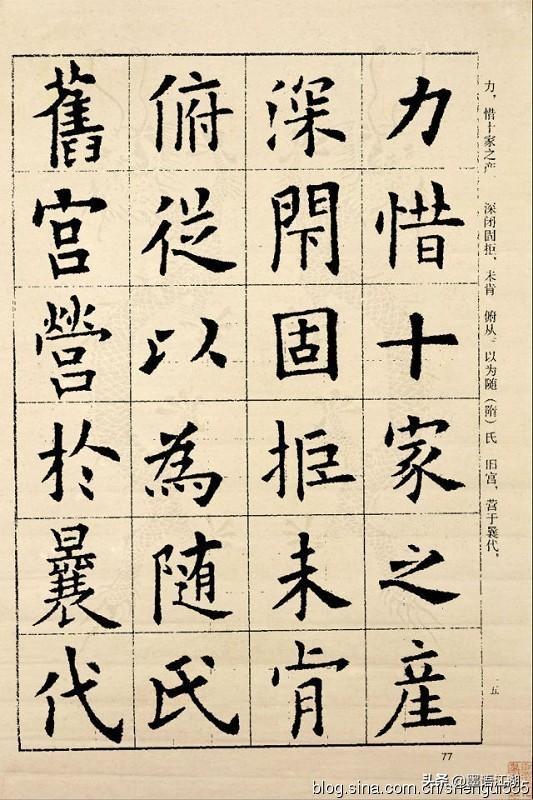 力，惜十家之产 深闭固拒，未肯 俯从。以为随（隋）氏 旧宫，营于曩代，
五
力惜十家之産
深閇固拒未肯
俯從以為随氏
舊宫營於曩代
77
头条 @墨语江湖